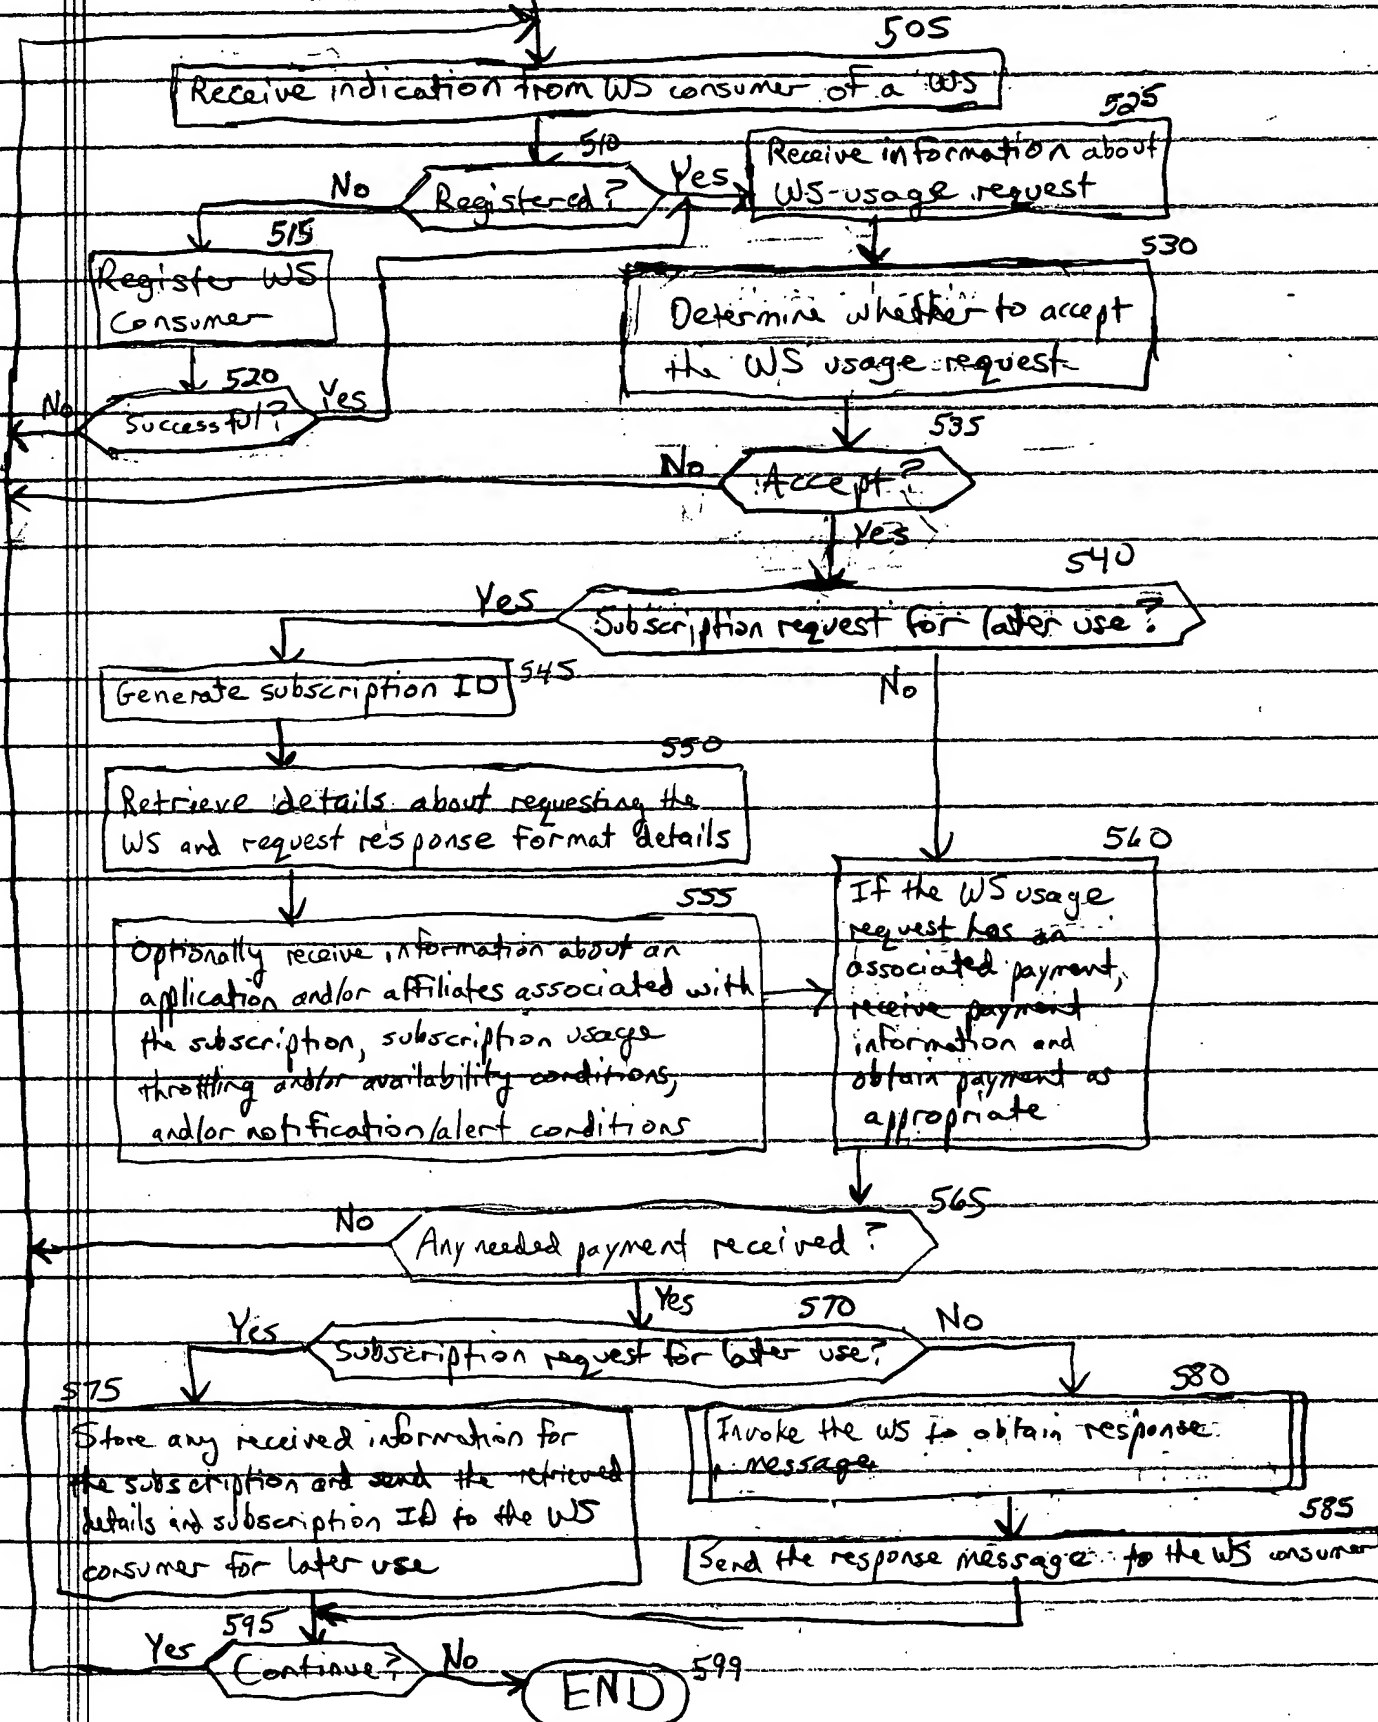 505
Receive indication from WS consumer of a WS
510
Registered?
No
Yes
525
Receive information about
WS-usage request
515
Register WS
Consumer
520
Successful?
No
Yes
530
Determine whether to accept
the WS usage request
535
Accept?
No
Yes
540
Subscription request for later use?
Yes
No
545
Generate subscription ID
550
Retrieve details about requesting the
WS and request response format details
555
Optionally receive information about an
application and/or affiliates associated with
the subscription, subscription usage
throttling and/or availability conditions,
and/or notification/alert conditions
560
If the WS usage
request has an
associated payment,
receive payment
information and
obtain payment as
appropriate
565
Any needed payment received?
No
Yes
570
Subscription request for later use?
Yes
No
575
Store any received information for
the subscription and send the retrieved
details and subscription ID to the WS
consumer for later use
580
Invoke the WS to obtain response
message
585
Send the response message to the WS consumer
595
Continue?
Yes
No
END
599